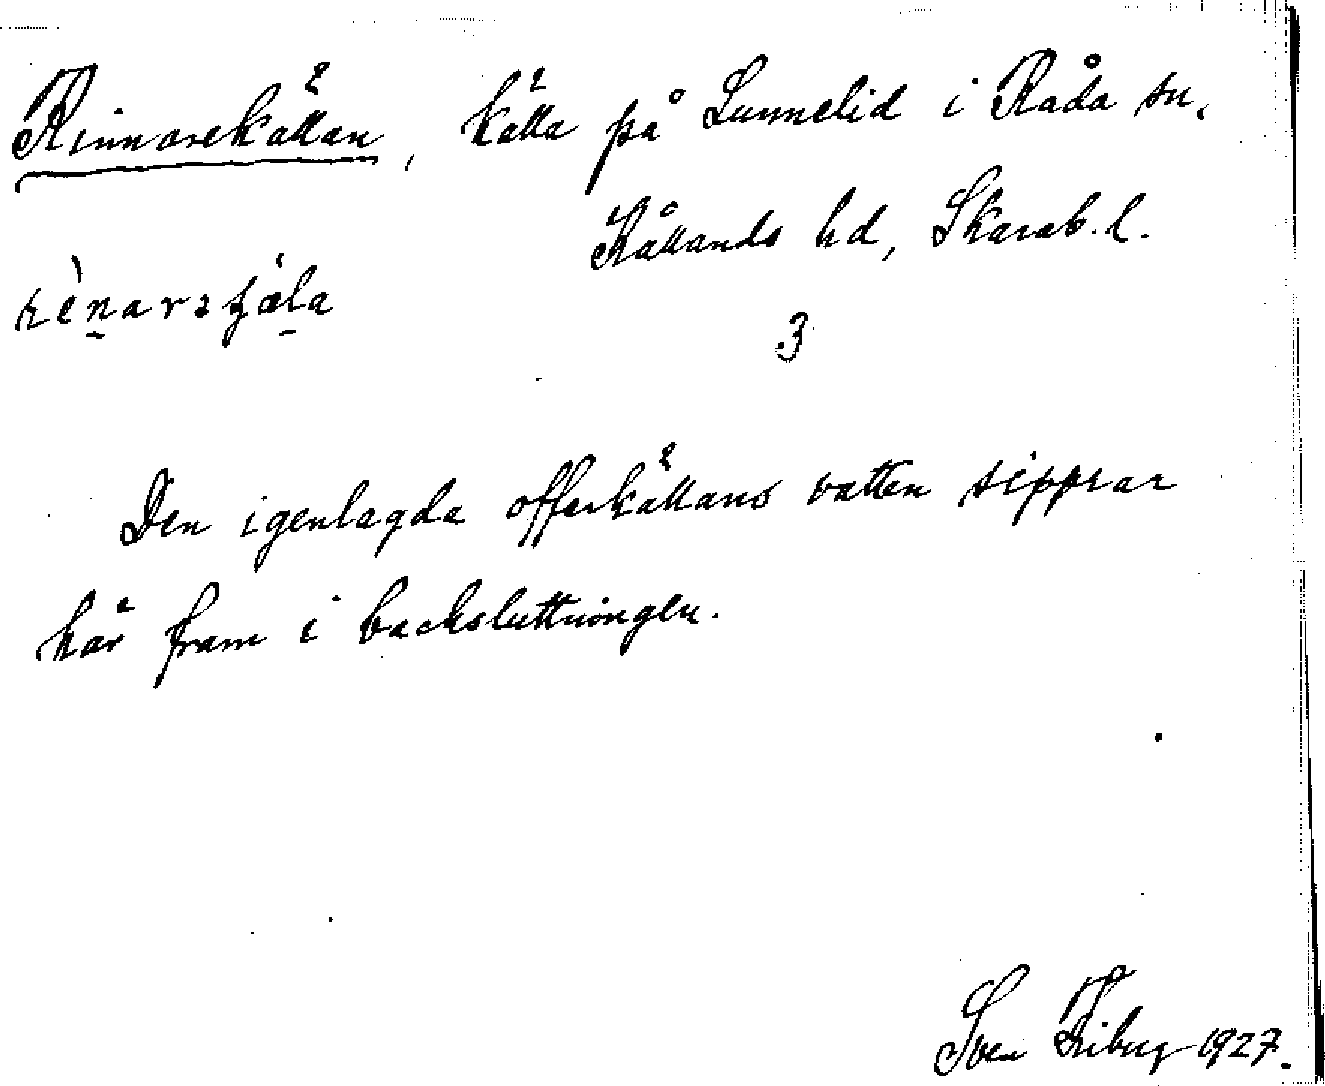 Rinnarekällan, källa på Lunnelid i Råda sn.
Kållands hd, Skarab. l.
3
Den igenlagda offerkällans vatten sipprar
här fram i backsluttningen.
Sven Friberg 1927.